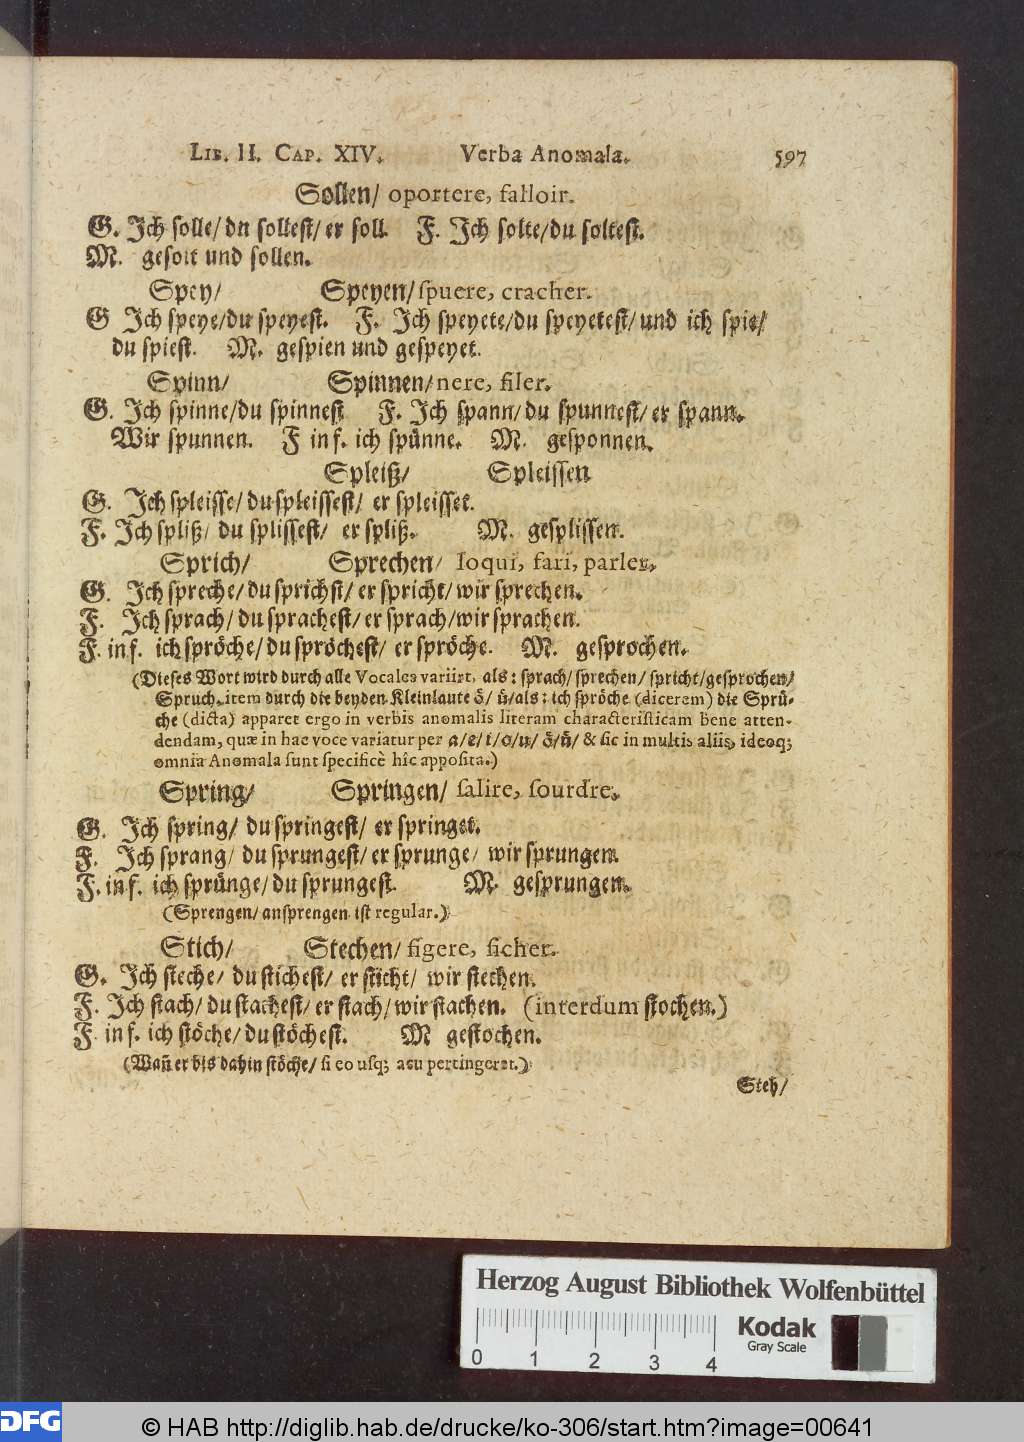 LIB. II. CAP. XIV. Verba Anomala. 597
Sollen/ oportere, falloir.
G. Ich solle/ du sollest/ er soll. F. Ich solte/du soltest.
M. gesolt und sollen.
Spey/ Speyen/ spuere, cracher.
G Ich speye/du speyest. F. Ich speyete/du speyetest/ und ich spie/
du spiest. M. gespien und gespeyet.
Spinn/ Spinnen/ nere, filer.
G. Ich spinne/du spinnest F. Ich spann/ du spunnest/ er spann.
Wir spunnen. F inf. ich spünne. M. gesponnen.
Spleiß/ Spleissen
G. Ich spleisse/ du spleissest/ er spleisset.
F. Ich spliß/ du splissest/ er spliß. M. gesplissen.
Sprich/ Sprechen/ loqui, fari, parler.
G. Ich spreche/ du sprichst/ er spricht/ wir sprechen.
F. Ich sprach/ du sprachest/ er sprach/wir sprachen.
F. inf. ich spröche/ du spröchest/ er spröche. M. gesprochen.
(Dieses Wort wird durch alle Vocales variirt, als: sprach/ sprechen/ spricht/gesprochen/
Spruch. item durch die beyden Kleinlaute ö/ ü/ als: ich spröche (dicerem) die Sprü-
che (dicta) apparet ergo in verbis anomalis literam characteristicam bene atten-
dendam, quæ in hac voce variatur per a/ e/ i/ o/ u/ ö/ ü/ & sic in multis aliis, ideoq;
omnia Anomala sunt specificè hîc apposita.)
Spring/ Springen/ salire, sourdre.
G. Ich spring/ du springest/ er springet.
F. Ich sprang/ du sprungest/ er sprunge/ wir sprungen.
F. inf. ich sprünge/ du sprungest. M. gesprungen.
(Sprengen/ ansprengen ist regular.)
Stich/ Stechen/ figere, ficher.
G. Ich steche/ du stichest/ er sticht/ wir stechen.
F. Ich stach/ du stachest/ er stach/ wir stachen. (interdum stochen.)
F inf. ich stöche/ du stöchest. M gestochen.
(Wañ er bis dahin stöche/ si eo usq; acu pertingeret.)
Steh/
Herzog August Bibliothek Wolfenbüttel
0 1 2 3 4
Kodak
Gray Scale
DFG
© HAB http://diglib.hab.de/drucke/ko-306/start.htm?image=00641